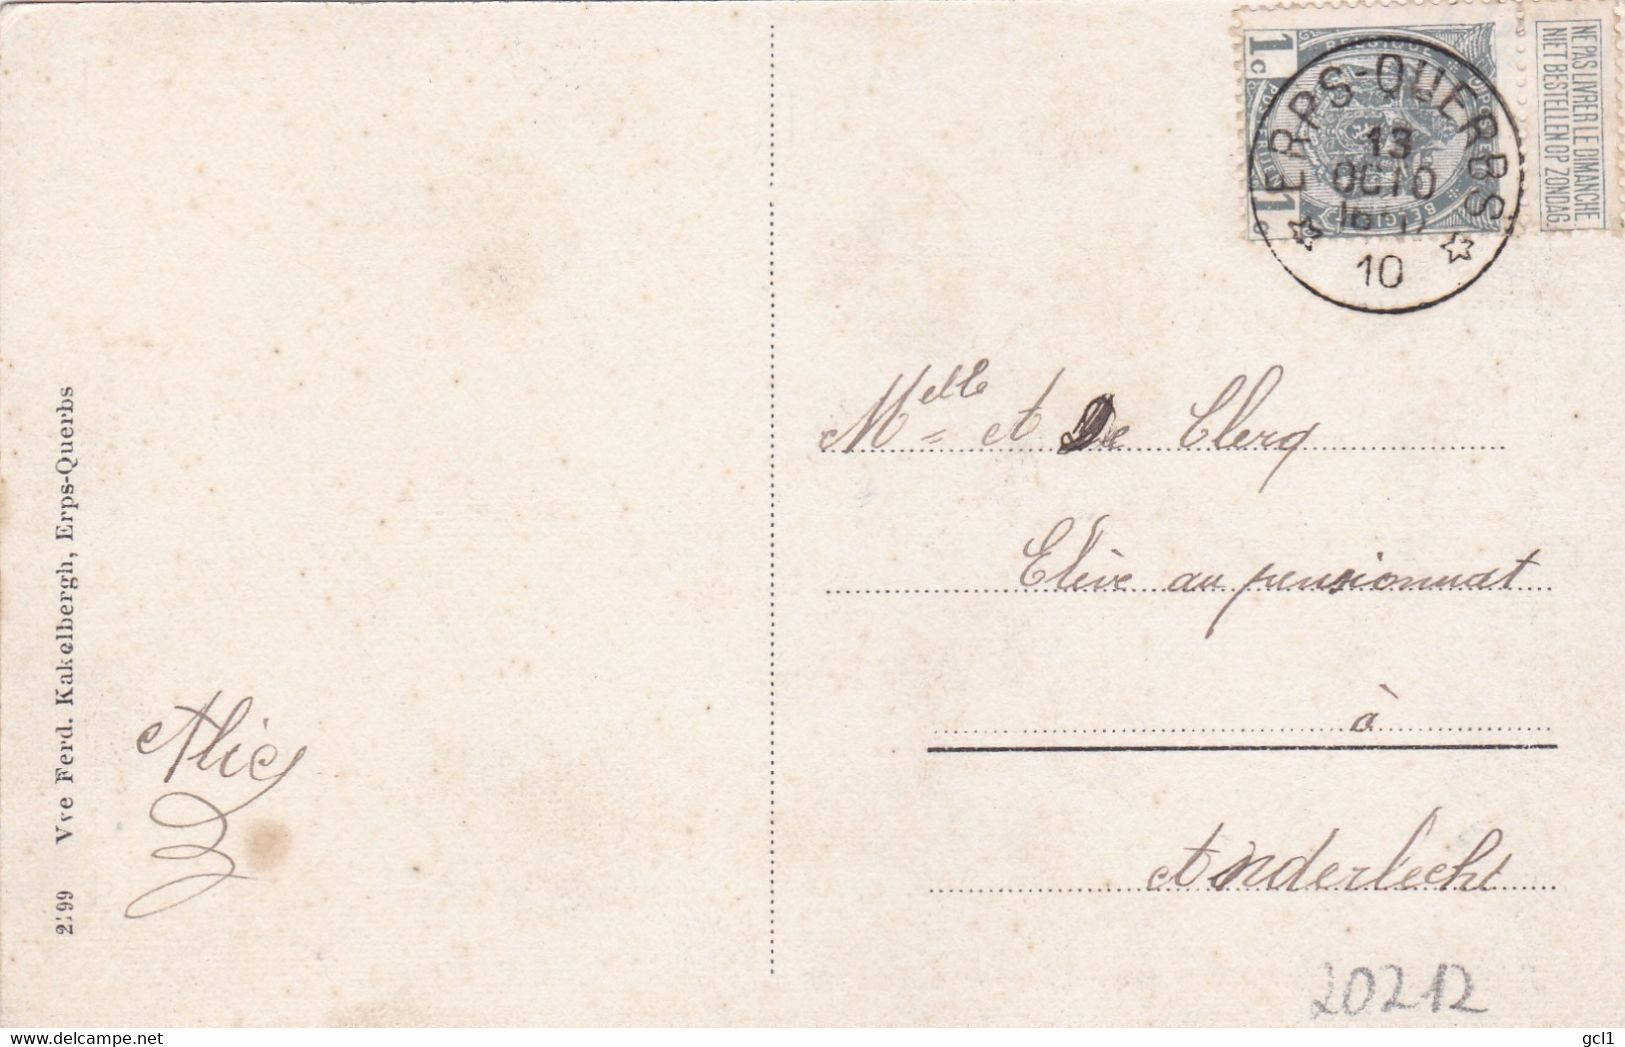 1c
BELGIQUE
BELGIE
1c
NE PAS LIVRER LE DIMANCHE
NIET BESTELLEN OP ZONDAG.
ERPS-QUERBS
13
OCTO
10
Melle A De Clerq
Elève au pensionnat
à
Anderlecht
Alice
Vve Ferd. Kakelbergh, Erps-Querbs
20212
delcampe.net
gcl1